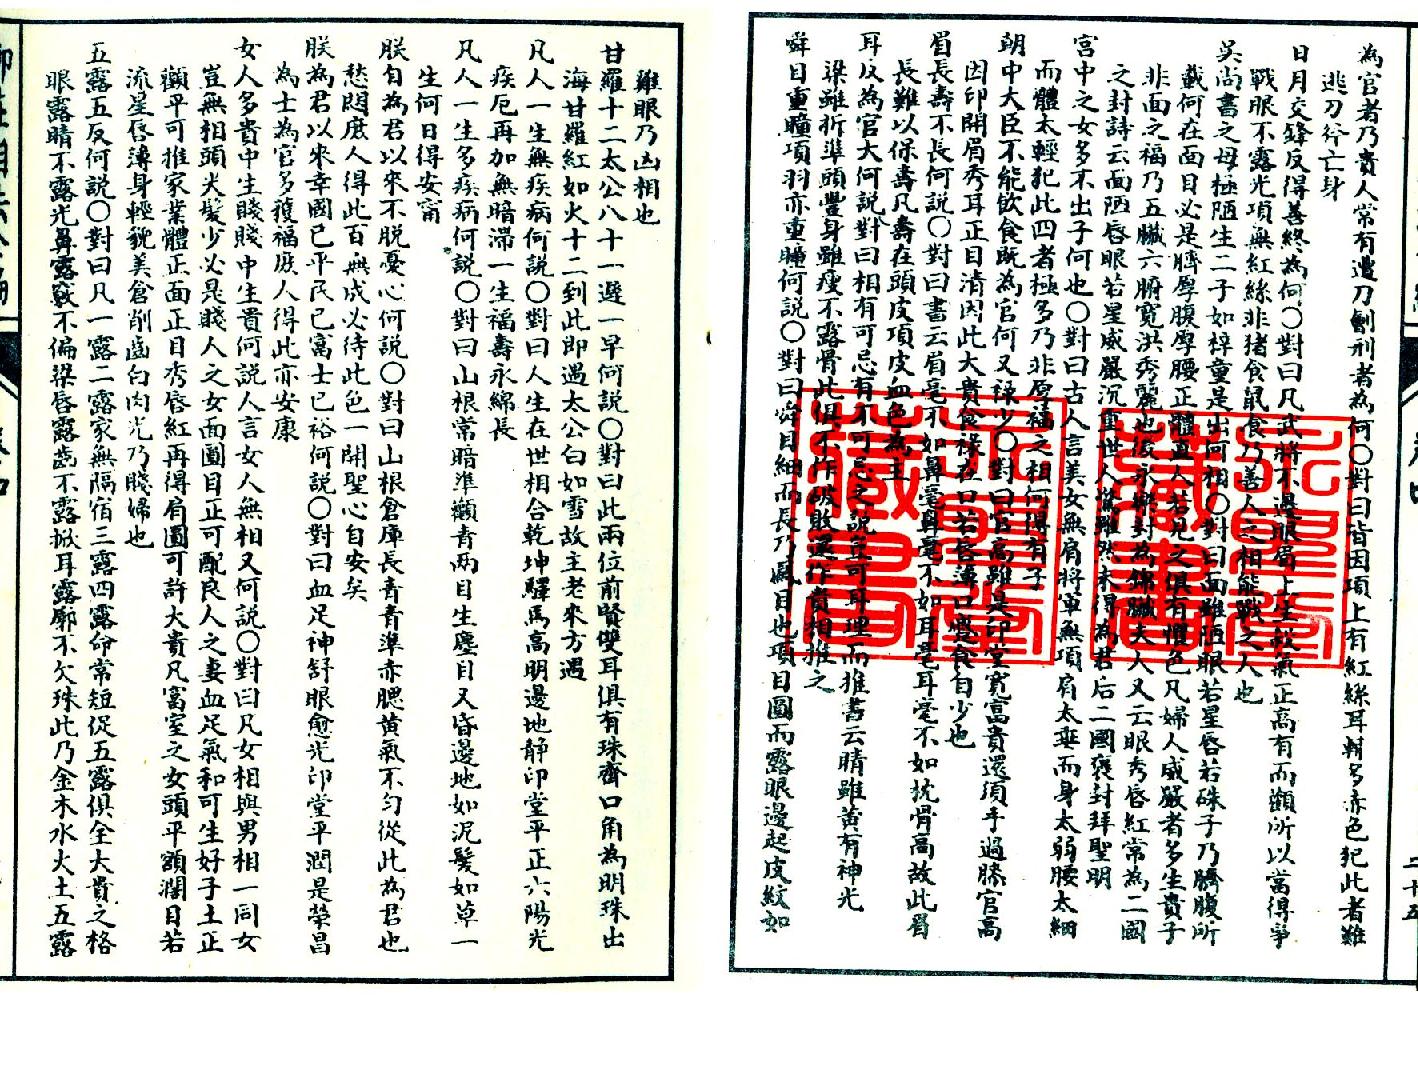 為官者乃貴人常有遭刀劊刑者為何〇對曰皆因項上有紅絲耳輔多赤色犯此者難
逃刀斧亡身
日月交鋒反得善終為何〇對曰凡武將不過眼眉上生殺氣正高有而顴所以當得爭
戰眼不露光項無紅絲非猪食鼠食乃善人之相能戰之人也
吳尚書之母極陋生二子如梓童是出何相〇對曰面雖陋眼若星唇若硃子乃臍腹所
載何在面目必是臍厚腹厚腰正體直人若見之俱有懼色凡婦人威嚴者多生貴子
非面之福乃五臟六腑寬洪秀麗也後永樂封為夫人又云眼秀唇紅常為二國
之封詩云面陋唇眼若星威嚴沉重世人驚雖然未得為君后二國褒封拜聖明
宮中之女多不出子何也〇對曰古人言美女無肩將軍無項肩太垂而身太弱腰太細
而體太輕犯此四者極多乃非厚福之相何得有子
朝中大臣不能飲食既為官何又祿少〇對曰官高雖是印堂寬富貴還須手過膝官高
因印開眉秀耳正目清因此大貴食祿在口若唇薄口蹙食自少也
眉長壽不長何說〇對曰書云眉毫不如鼻毫鼻毫不如耳毫耳毫不如枕骨高故此眉
長難以保壽凡壽在頭皮項皮血色為主
耳反為官大何說對曰相有可忌有不可忌之說豈可耳理而推書云睛雖黄有神光
梁雖折準頭豐身雖瘦不露骨此俱不作破敗還作貴相推之
舜目重瞳項羽亦重瞳何說〇對曰舜目細而長乃鳳目也項目圓而露眼邊起皮紋如
雞眼乃凶相也
甘羅十二太公八十一遲一早何說〇對曰此兩位前賢雙耳俱有珠齊口角為明珠出
海甘羅紅如火十二到此即遇太公白如雪故主老來方遇
凡人一生無疾病何說〇對曰人生在世相合乾坤驛馬高明邊地靜印堂平正六陽光
疾厄再加無暗滯一生福壽永綿長
凡人一生多疾病何說〇對曰山根常暗準顴青兩目生塵目又昏邊地如泥髮如草一
生何日得安甯
朕自為君以來不脱憂心何說〇對曰山根倉庫長青青準赤腮黄氣不匀從此為君也
愁悶庶人得此百無成必待此色一開聖心自安矣
朕為君以來幸國已平民已富士已裕何說〇對曰血足神舒眼愈光印堂平潤是榮昌
為士為官多獲福庶人得此亦安康
女人多貴中生賤賤中生貴何說人言女人無相又何說〇對曰凡女相與男相一同女
豈無相頭尖髮少必是賤人之女面圓目正可配良人之妻血足氣和可生好子土正
顴平可推家業體正面正目秀唇紅再得肩圓可許大貴凡富室之女頭平額濶目若
流星唇薄身輕貌美倉削齒白肉光乃賤婦也
五露五反何說〇對曰凡一露二露家無隔宿三露四露命常短促五露俱全大貴之格
眼露睛不露光鼻露竅不偏梁唇露齒不露掀耳露廓不欠珠此乃金木水火土五露
二十五